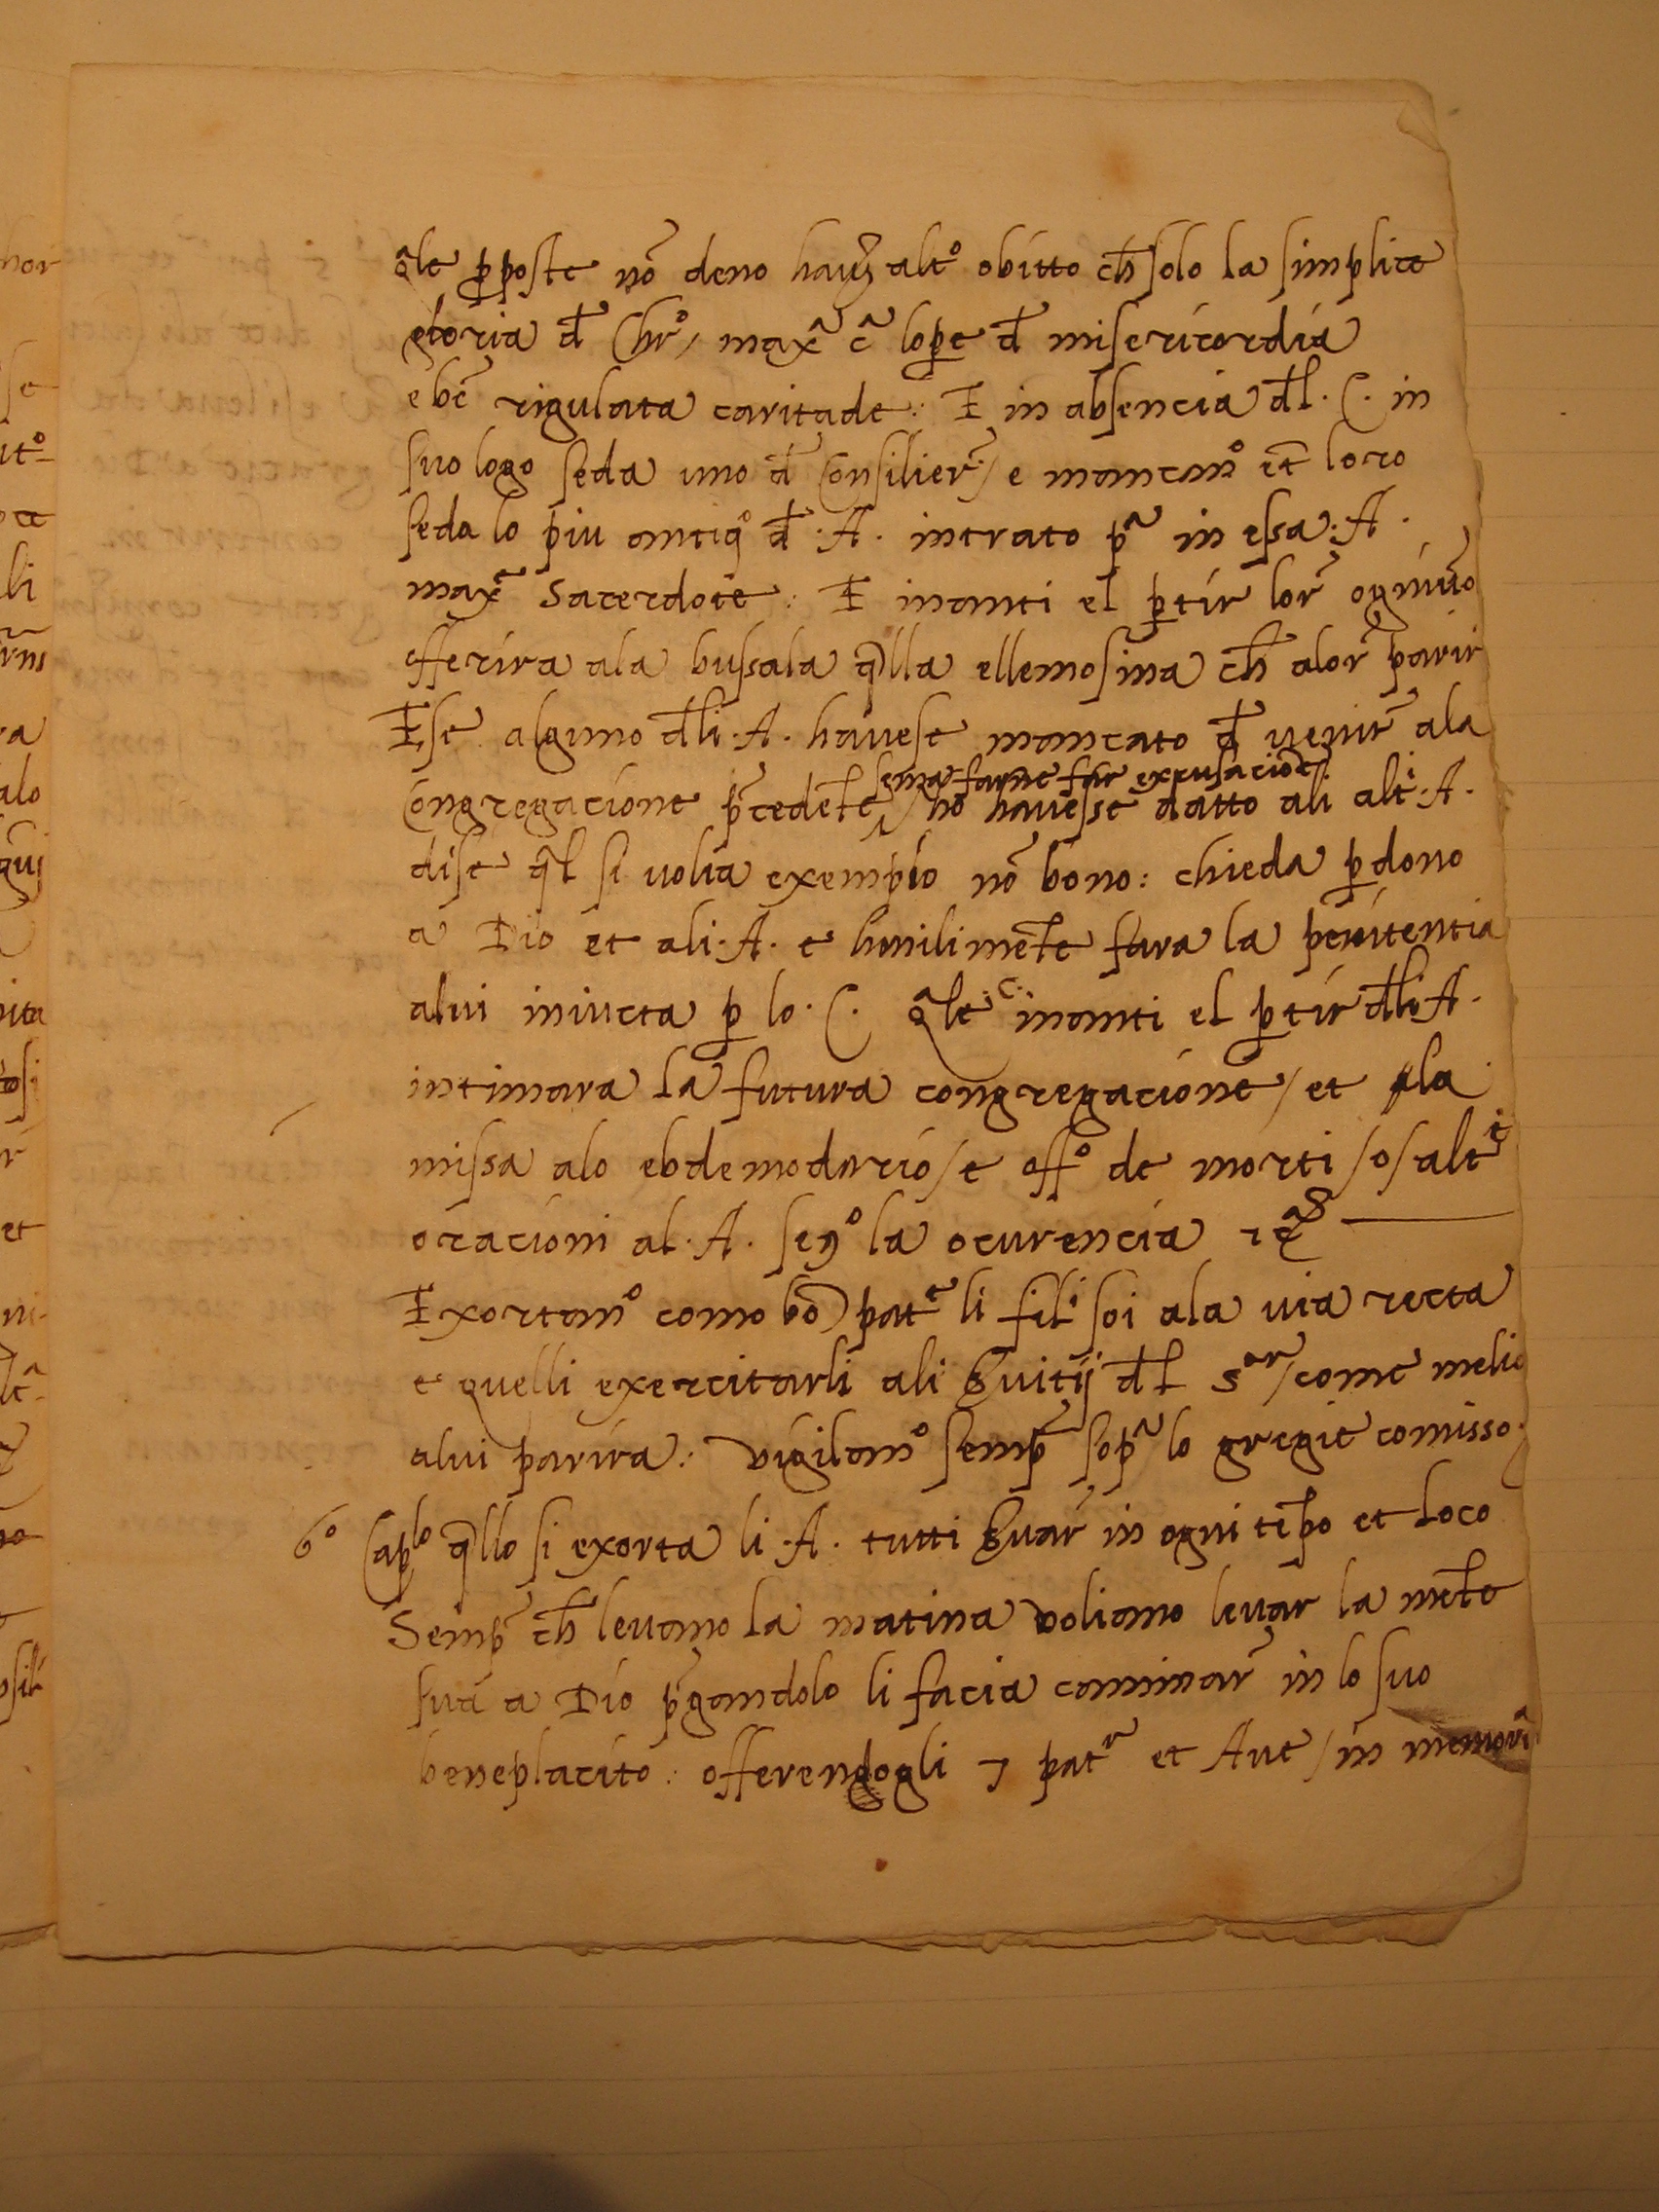 q̃le p̱poste nõ deno hauer̃ altº obitto ch̃ solo la simplice
gloria d̃ Chrº / max̃ c̃ lope d̃ misericordia
e bẽ rigulata caritade : E in absencia d̃l . C . in
suo logo seda uno d̃ Consilier̃ / e mancanº et̃ loro
seda lo piu antiqº d̃ . A . intrato pª in essa . A .
max̃e Sacerdote : E inanti el p̱tir lor̃ ogniuo
offerira ala bussala q̃lla ellemosina ch̃ alor̃ parir
E se alguno d̃li . A . hauese mancato d̃ uenir̃ ala
Congregacione p̃cedẽte senza farne far excusacione / nõ hauesse datto ali alti . A .
dise q̃l si uolia exempio nõ bono : chieda p̱dono
a Dio et ali . A . e humilimẽte fara la penitentia
alui iniucta p̱ lo . C . q̃le . C . inanti el p̱tir d̃li A .
intimara la futura congregacione / et la
missa alo ebdemodario / e offº de morti / o / alti
oracioni al . A . segº la ocurencia
Exortanº como bõ patᵉ li fili soi ala uia recta
e quelli exercitarli ali Suitij d̃l Sᵒʳ / come melio
alui parira : vigilanº semp̃ sopª lo gregie comisso .
6º Capˡᵒ q̃llo si exorta li . A . tutti Suar̃ in ogni tẽpo et loco
Semp̃ ch̃ leuamo la matina voliamo leuar la mẽte
sua a Dio p̃gandolo li facia caminar̃ in lo suo
beneplacito : offerendogli 7 patʳ et Aue / in memori